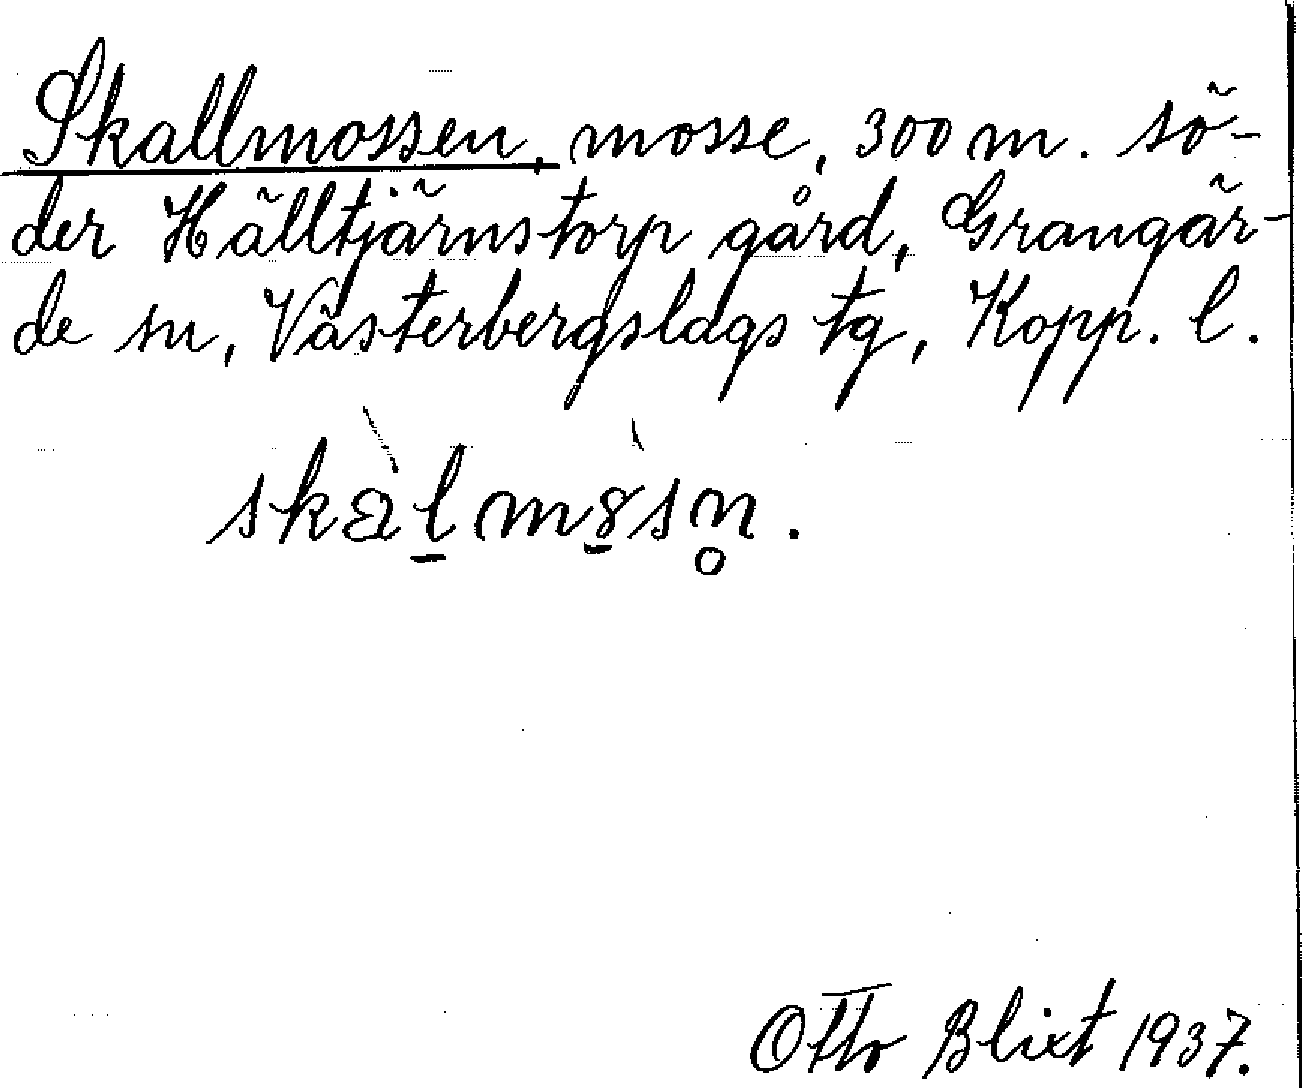 Skallmossen, mosse, 300 m. sö-
der Hälltjärnstorp gård, Grangär-
de sn, Västerbergslags tg, Kopp. l.
skàl̠mòsn̥.
Otto Blixt 1937.